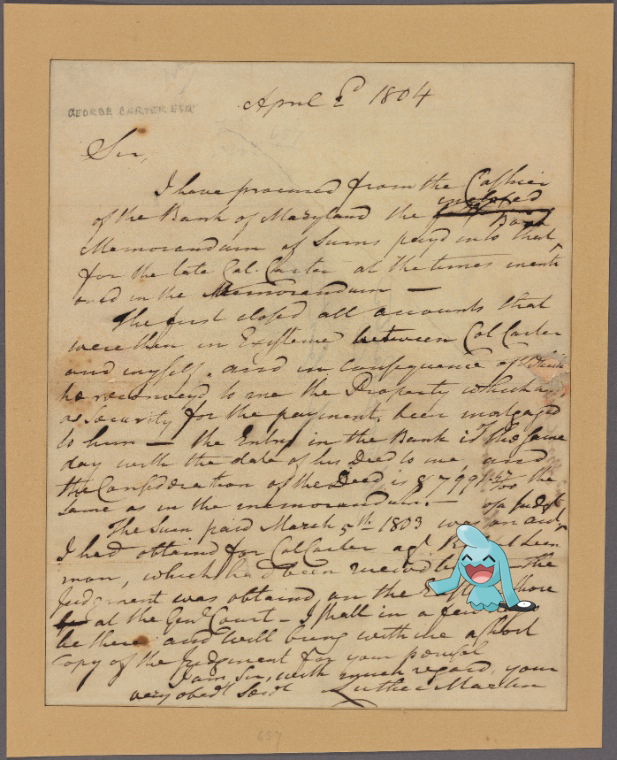 April 2d 1804
GEORGE CARTER ESQ
Sir,
I have procured from the Cashier
of the Bank of Maryland the inclosed
Memorandum of Sums payd into that Bank
for the late Col. Carter at the times menti
oned in the Memorandum —
The first closed all accounts that
were then in Existence between Col Carter
and myself, and in consequence of which
he reconveyed to me the Property which
as Security for the payment, been mortgaged
to him — the Entry in the Bank is the same
day with the date of his Deed to me and
the Consideration of the Deed is the
same as in the memorandum. —
The Sum paid March 5th 1803 was on a Judgt
I had obtained for Col Carter agt
man, which had been received the
Judgment was obtained, on the Shore
at the Genl Court — I shall in a few
be there and will bring with me a short
Copy of the Judgment for your perusal
I am, Sir, with much regard, your
very obedt Servt Luther Martin
657